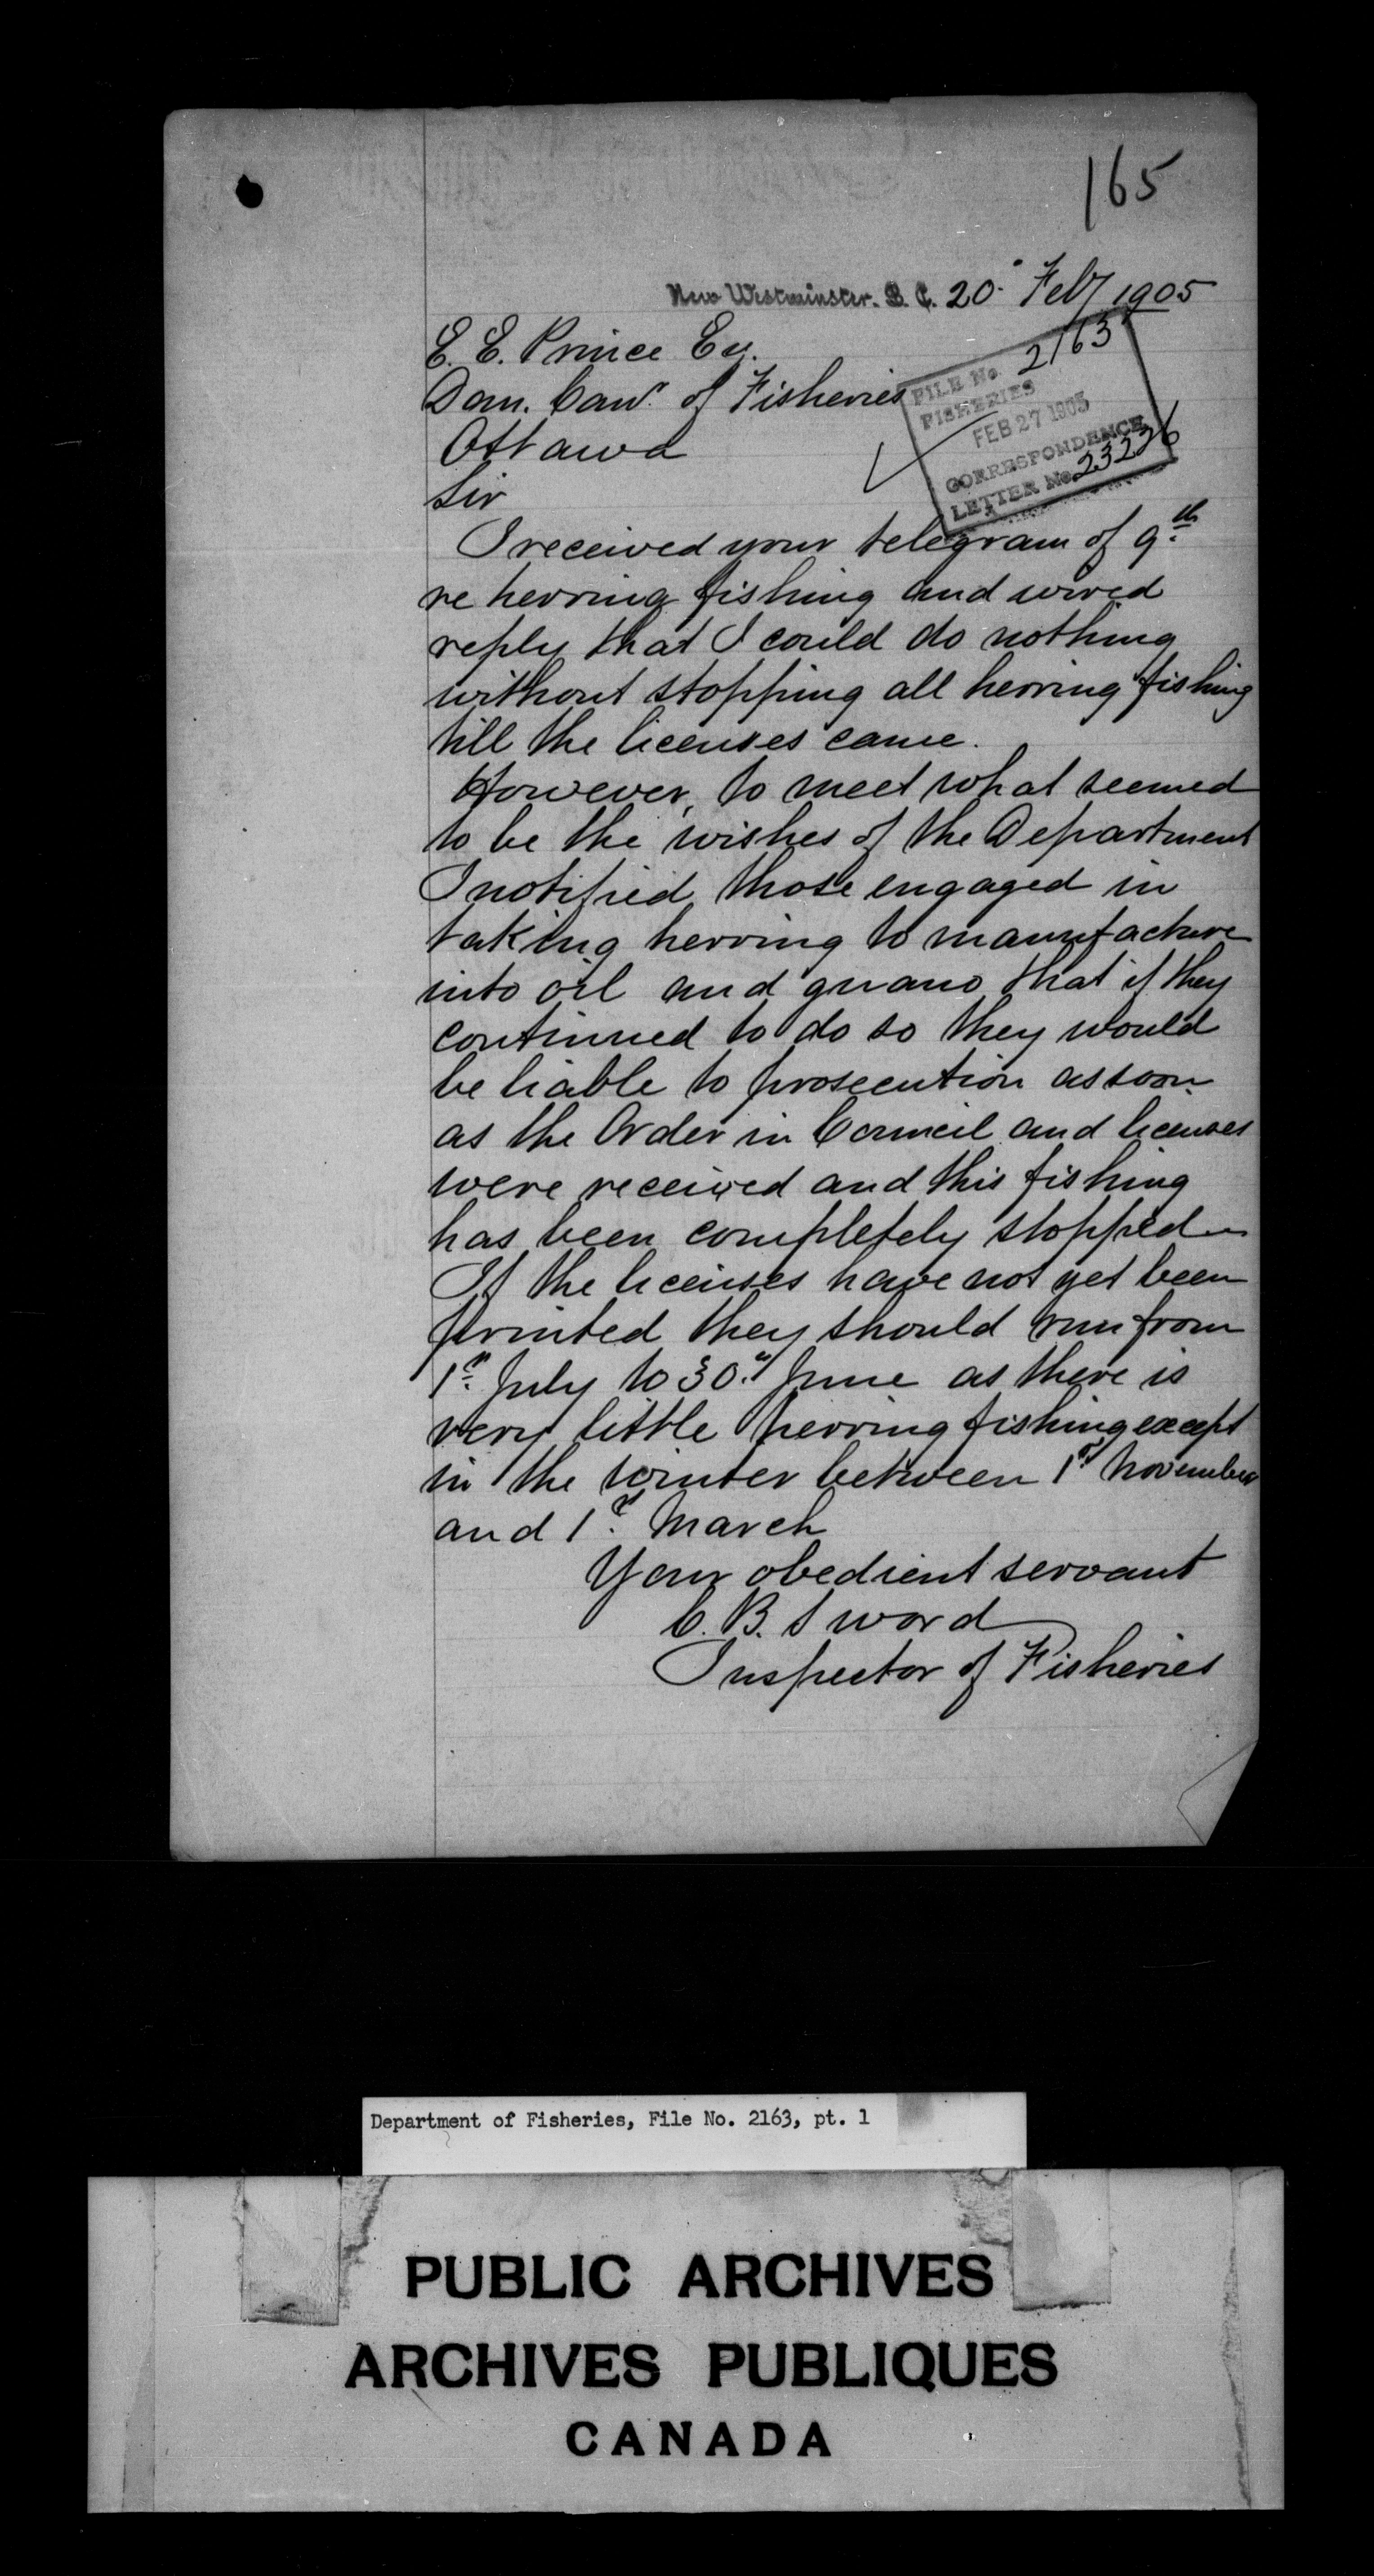 165
New Westminster. B. C. 20. Feby 1905
E. E. Prince Esq.
Dom. Comr. of Fisheries
Ottawa
Sir
FILE No. 2163
FISHERIES
FEB 27 1905
CORRESPONDENCE
LETTER No. 23226
I received your telegram of 9th
re herring fishing and wired
reply that I could do nothing
without stopping all herring fishing
till the licenses came.
However, to meet what seemed
to be the wishes of the Department
I notified those engaged in
taking herring to manufacture
into oil and guano that if they
continued to do so they would
be liable to prosecution as soon
as the Order in Council and licenses
were received and this fishing
has been completely stopped
If the licenses have not yet been
printed they should run from
1st July to 30th June as there is
very little herring fishing except
in the winter between 1st November
and 1st March
Your obedient servant
C. B. Sword
Inspector of Fisheries
Department of Fisheries, File No. 2163, pt. 1
PUBLIC ARCHIVES
ARCHIVES PUBLIQUES
CANADA